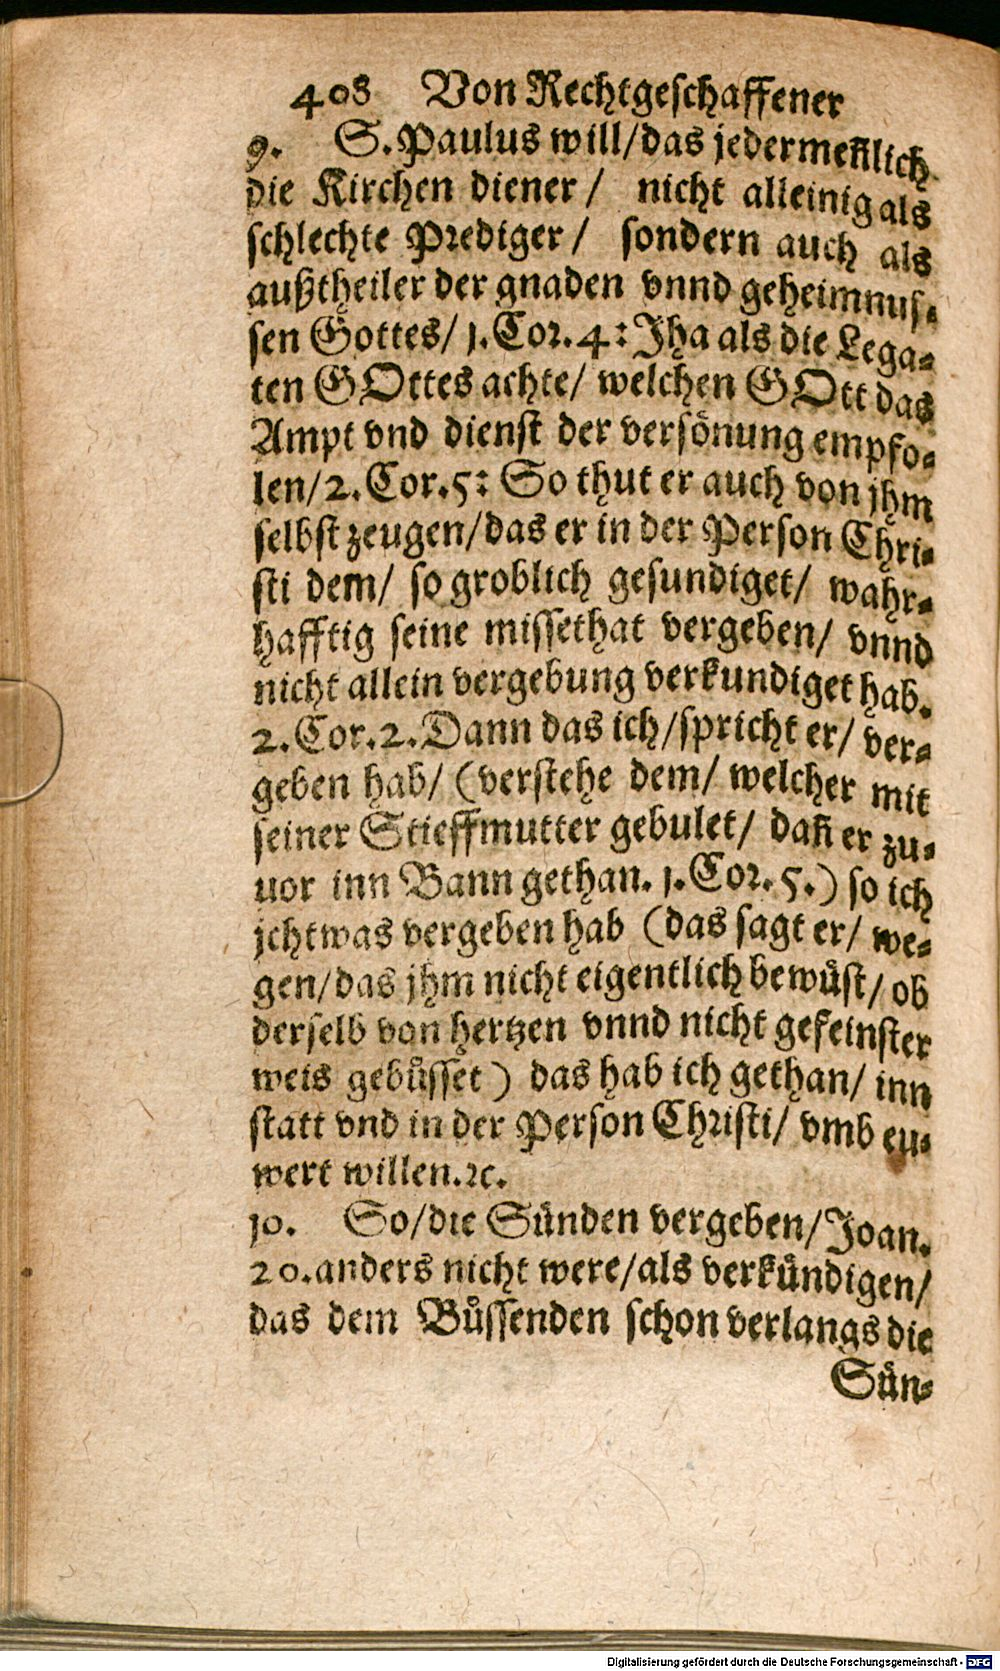 408 Von Rechtgeschaffener
9. S. Paulus will/das jedermeñlich
die Kirchen diener/ nicht alleinig als
schlechte Prediger/ sondern auch als
außtheiler der gnaden vnnd geheimnus-
sen Gottes/ 1. Cor. 4: Jha als die Lega-
ten GOttes achte/ welchen GOtt das
Ampt vnd dienst der versönung empfo-
len/2. Cor. 5: So thut er auch von jhm
selbst zeugen/das er in der Person Chri-
sti dem/ so groblich gesundiget/ wahr-
hafftig seine missethat vergeben/ vnnd
nicht allein vergebung verkundiget hab.
2. Cor. 2. Dann das ich/spricht er/ ver-
geben hab/ (verstehe dem/ welcher mit
seiner Stieffmutter gebulet/ dañ er zu-
uor inn Bann gethan. 1. Cor. 5.) so ich
jchtwas vergeben hab (das sagt er/ we-
gen/das jhm nicht eigentlich bewůst/ ob
derselb von hertzen vnnd nicht gefeinster
weis gebůsset) das hab ich gethan/ inn
statt vnd in der Person Christi/ vmb eu-
wert willen. ꝛc.
10. So/die Sünden vergeben/Joan.
20. anders nicht were/als verkündigen/
das dem Bůssenden schon verlangs die
Sün-
Digitalisierung gefördert durch die Deutsche Forschungsgemeinschaft - DFG